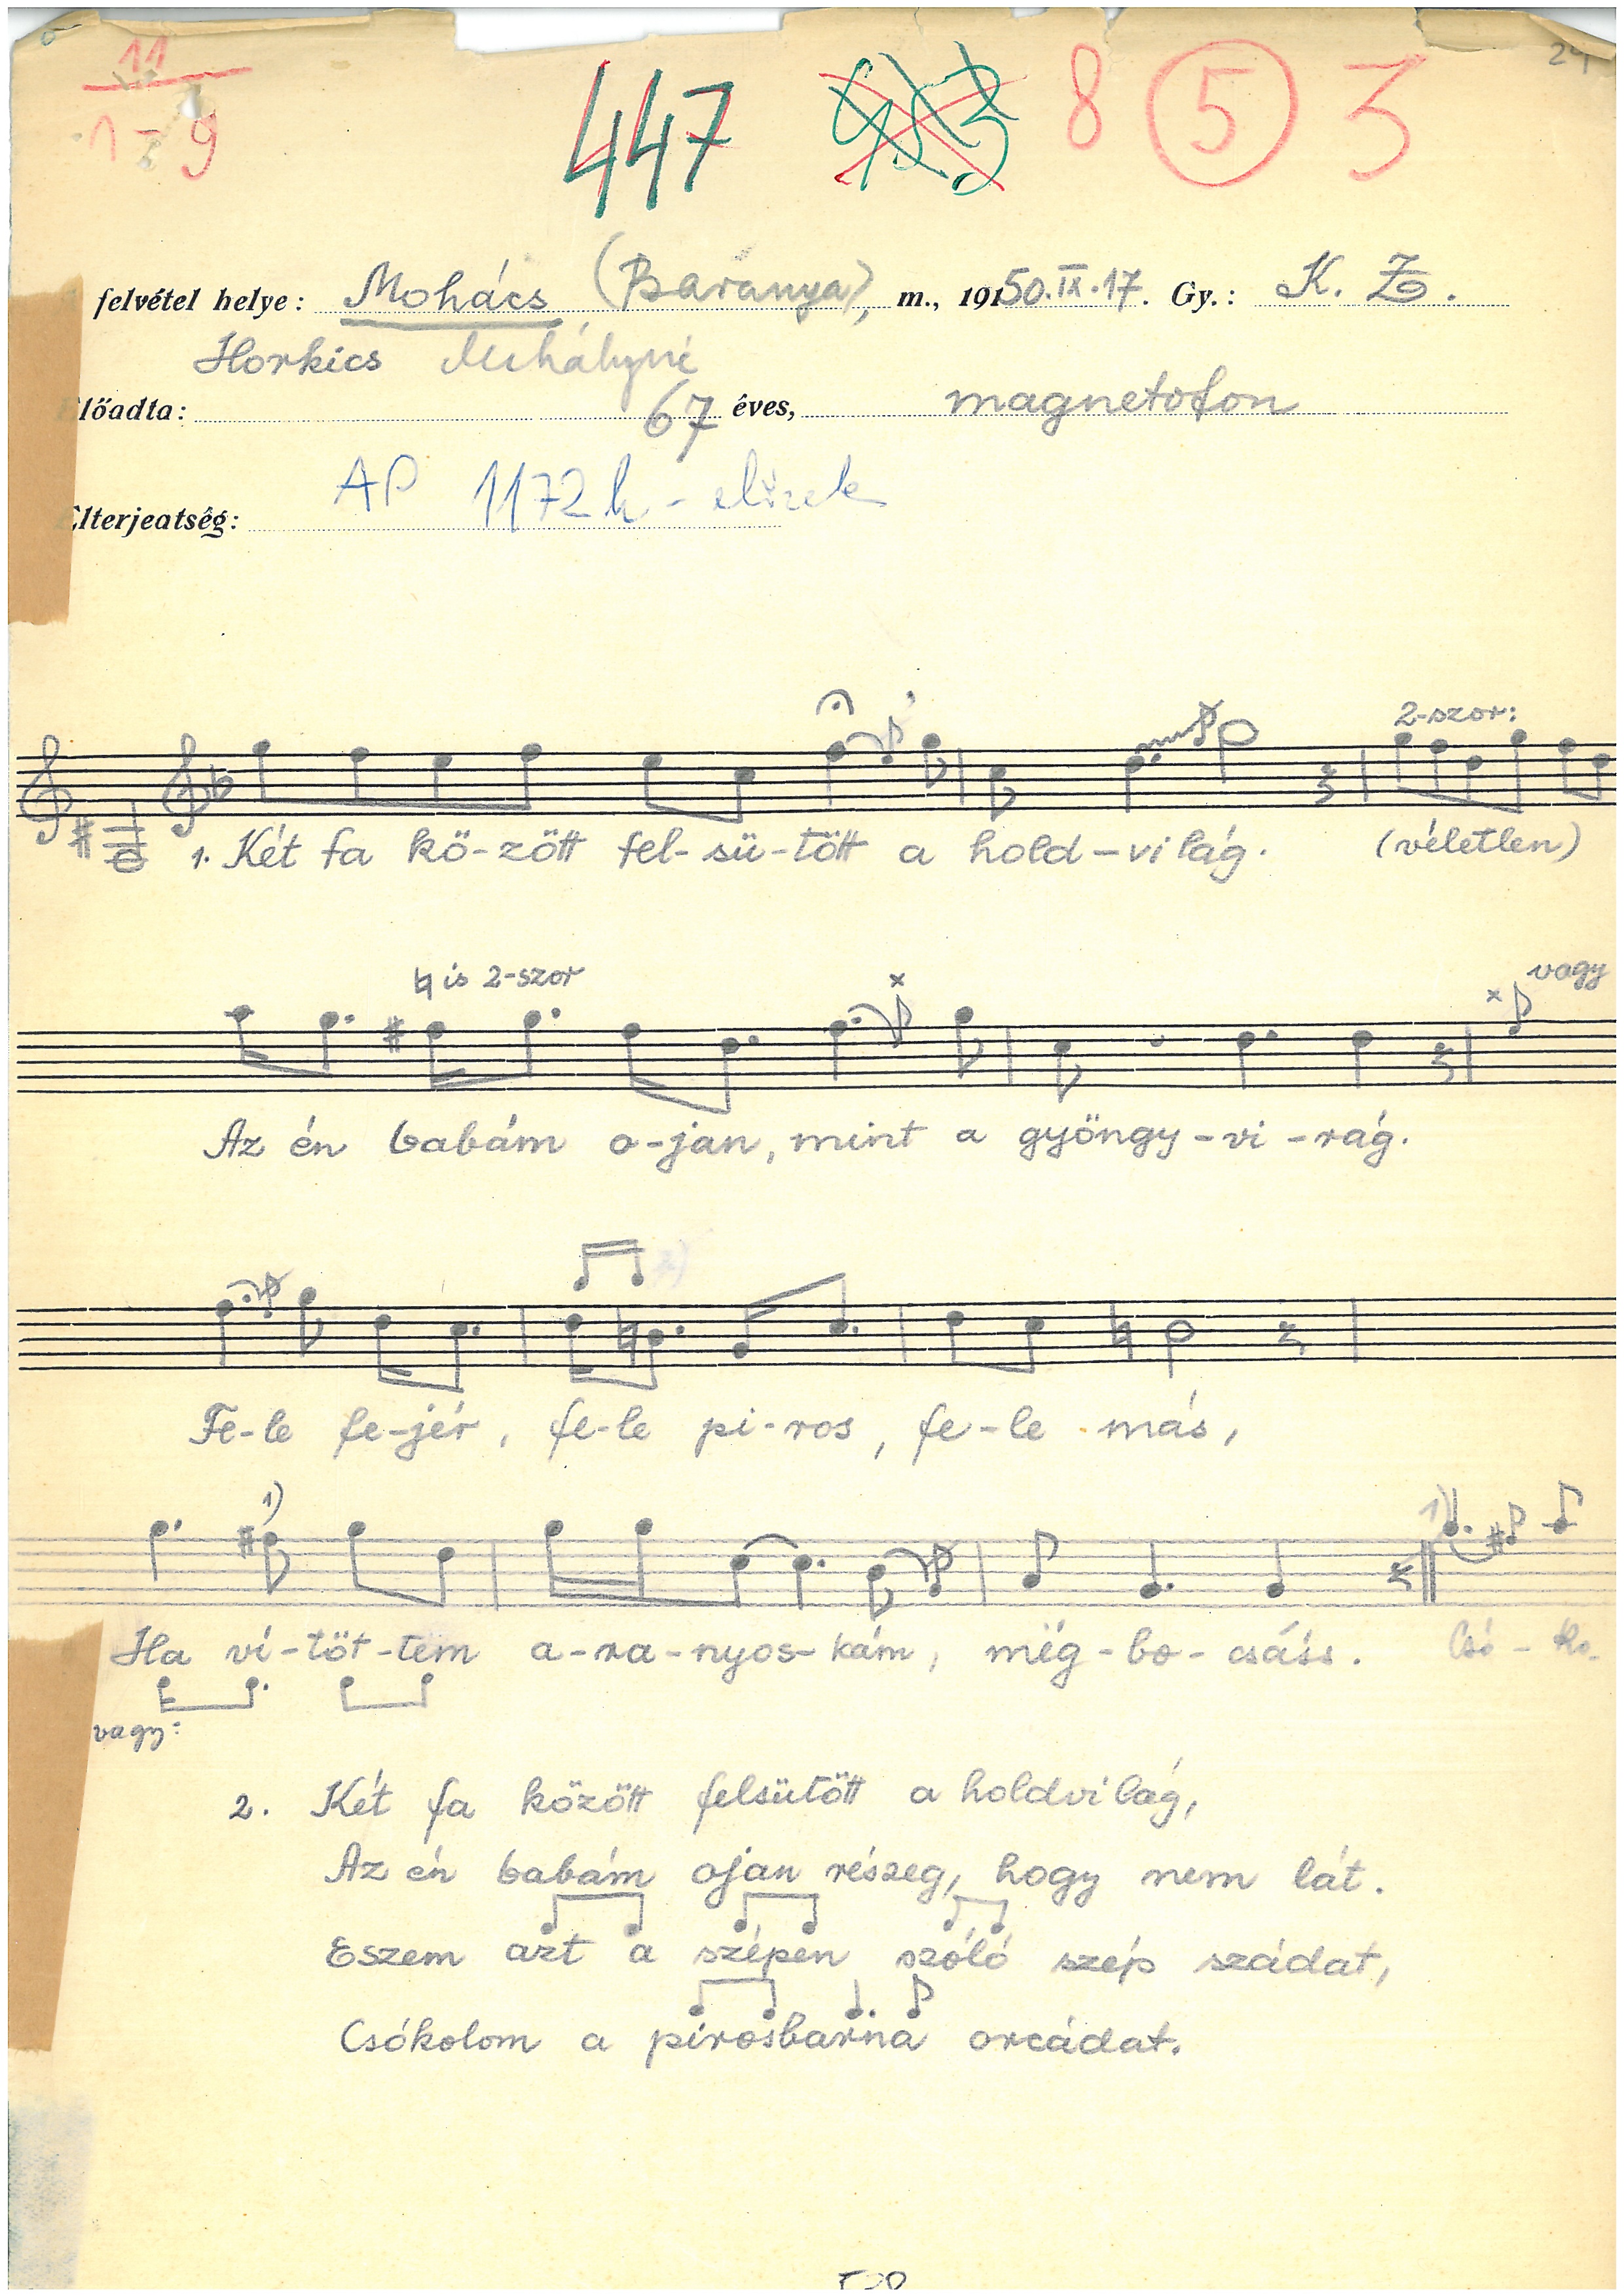 11
24
1-9
447 8 5 3
felvétel helye: Mohács (Baranya), m., 19150.IX.17. Gy.: K. Z.
Horkics Mihályné
Előadta: 67 éves, magnetofon
AP 1172 h-
Elterjeatség:
2-szor:
1. Két fa kö-zött fel-sü-tött a hold-világ. (véletlen)
♮ is 2-szor
x
x vagy
Az én babám o-jan, mint a gyöngy-vi-rág.
Fe-le fe-jér, fe-le pi-ros, fe-le más,
1)
1)
Ha ví-töt-tem a-ra-nyos-kám, még-bo-csáss. Csó-ko-
vagy:
2. Két fa között felsütött a holdvilág,
Az én babám ojan részeg, hogy nem lát.
Eszem azt a szépen szóló szép szádat,
Csókolom a pirosbarna orcádat.